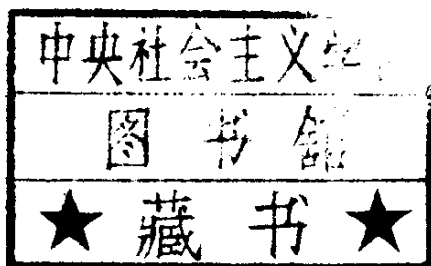 中央社会主义学
图书馆
★藏书★